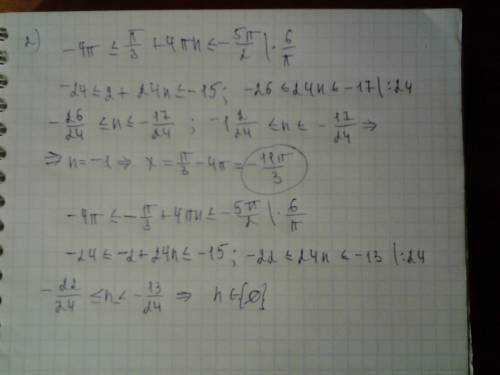 2) -4π ≤ π/3 + 4πn ≤ -5π/2 | · 6/π
-24 ≤ 2 + 24n ≤ -15 ; -26 ≤ 24n ≤ -17 | :24
-26/24 ≤ n ≤ -17/24 ; -1 2/24 ≤ n ≤ -17/24 ⇒
⇒ n = -1 ⇒ x = π/3 - 4π = -11π/3
-4π ≤ -π/3 + 4πn ≤ -5π/2 | · 6/π
-24 ≤ -2 + 24n ≤ -15 ; -22 ≤ 24n ≤ -13 | :24
-22/24 ≤ n ≤ -13/24 ⇒ n ∈ {∅}